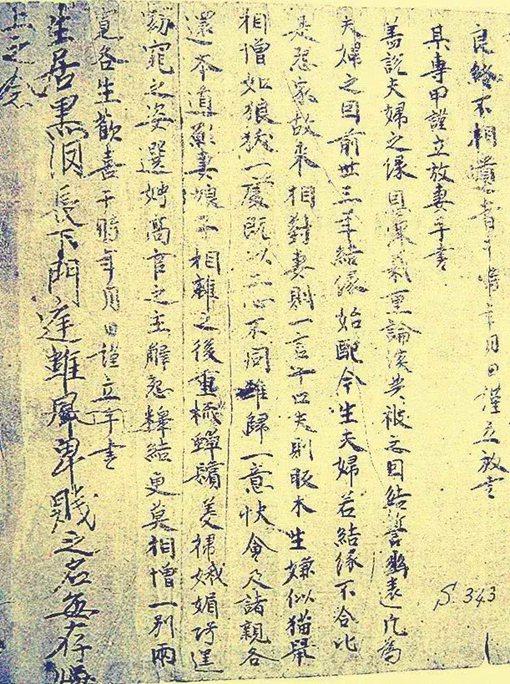 良緣不相遺書于時年月日謹立放書
某專甲謹立放妻手書
蓋說夫婦之緣恩深義重論談共被之因結誓幽遠凡為
夫婦之因前世三年結緣始配今生夫婦若結緣不合比
是怨家故來相對妻則一言十口夫則販木生嫌似猫鼠
相憎如狼狖一處既以二心不同難歸一意快會及諸親各
還本道願妻娘子相離之後重梳蟬鬢美掃娥媚巧逞
窈窕之姿選娉高官之主解怨釋結更莫相憎一別兩
寬各生歡喜于時年月日謹立手書
生居黑長下門庭雖卑賤之名每存
上之念
S. 343